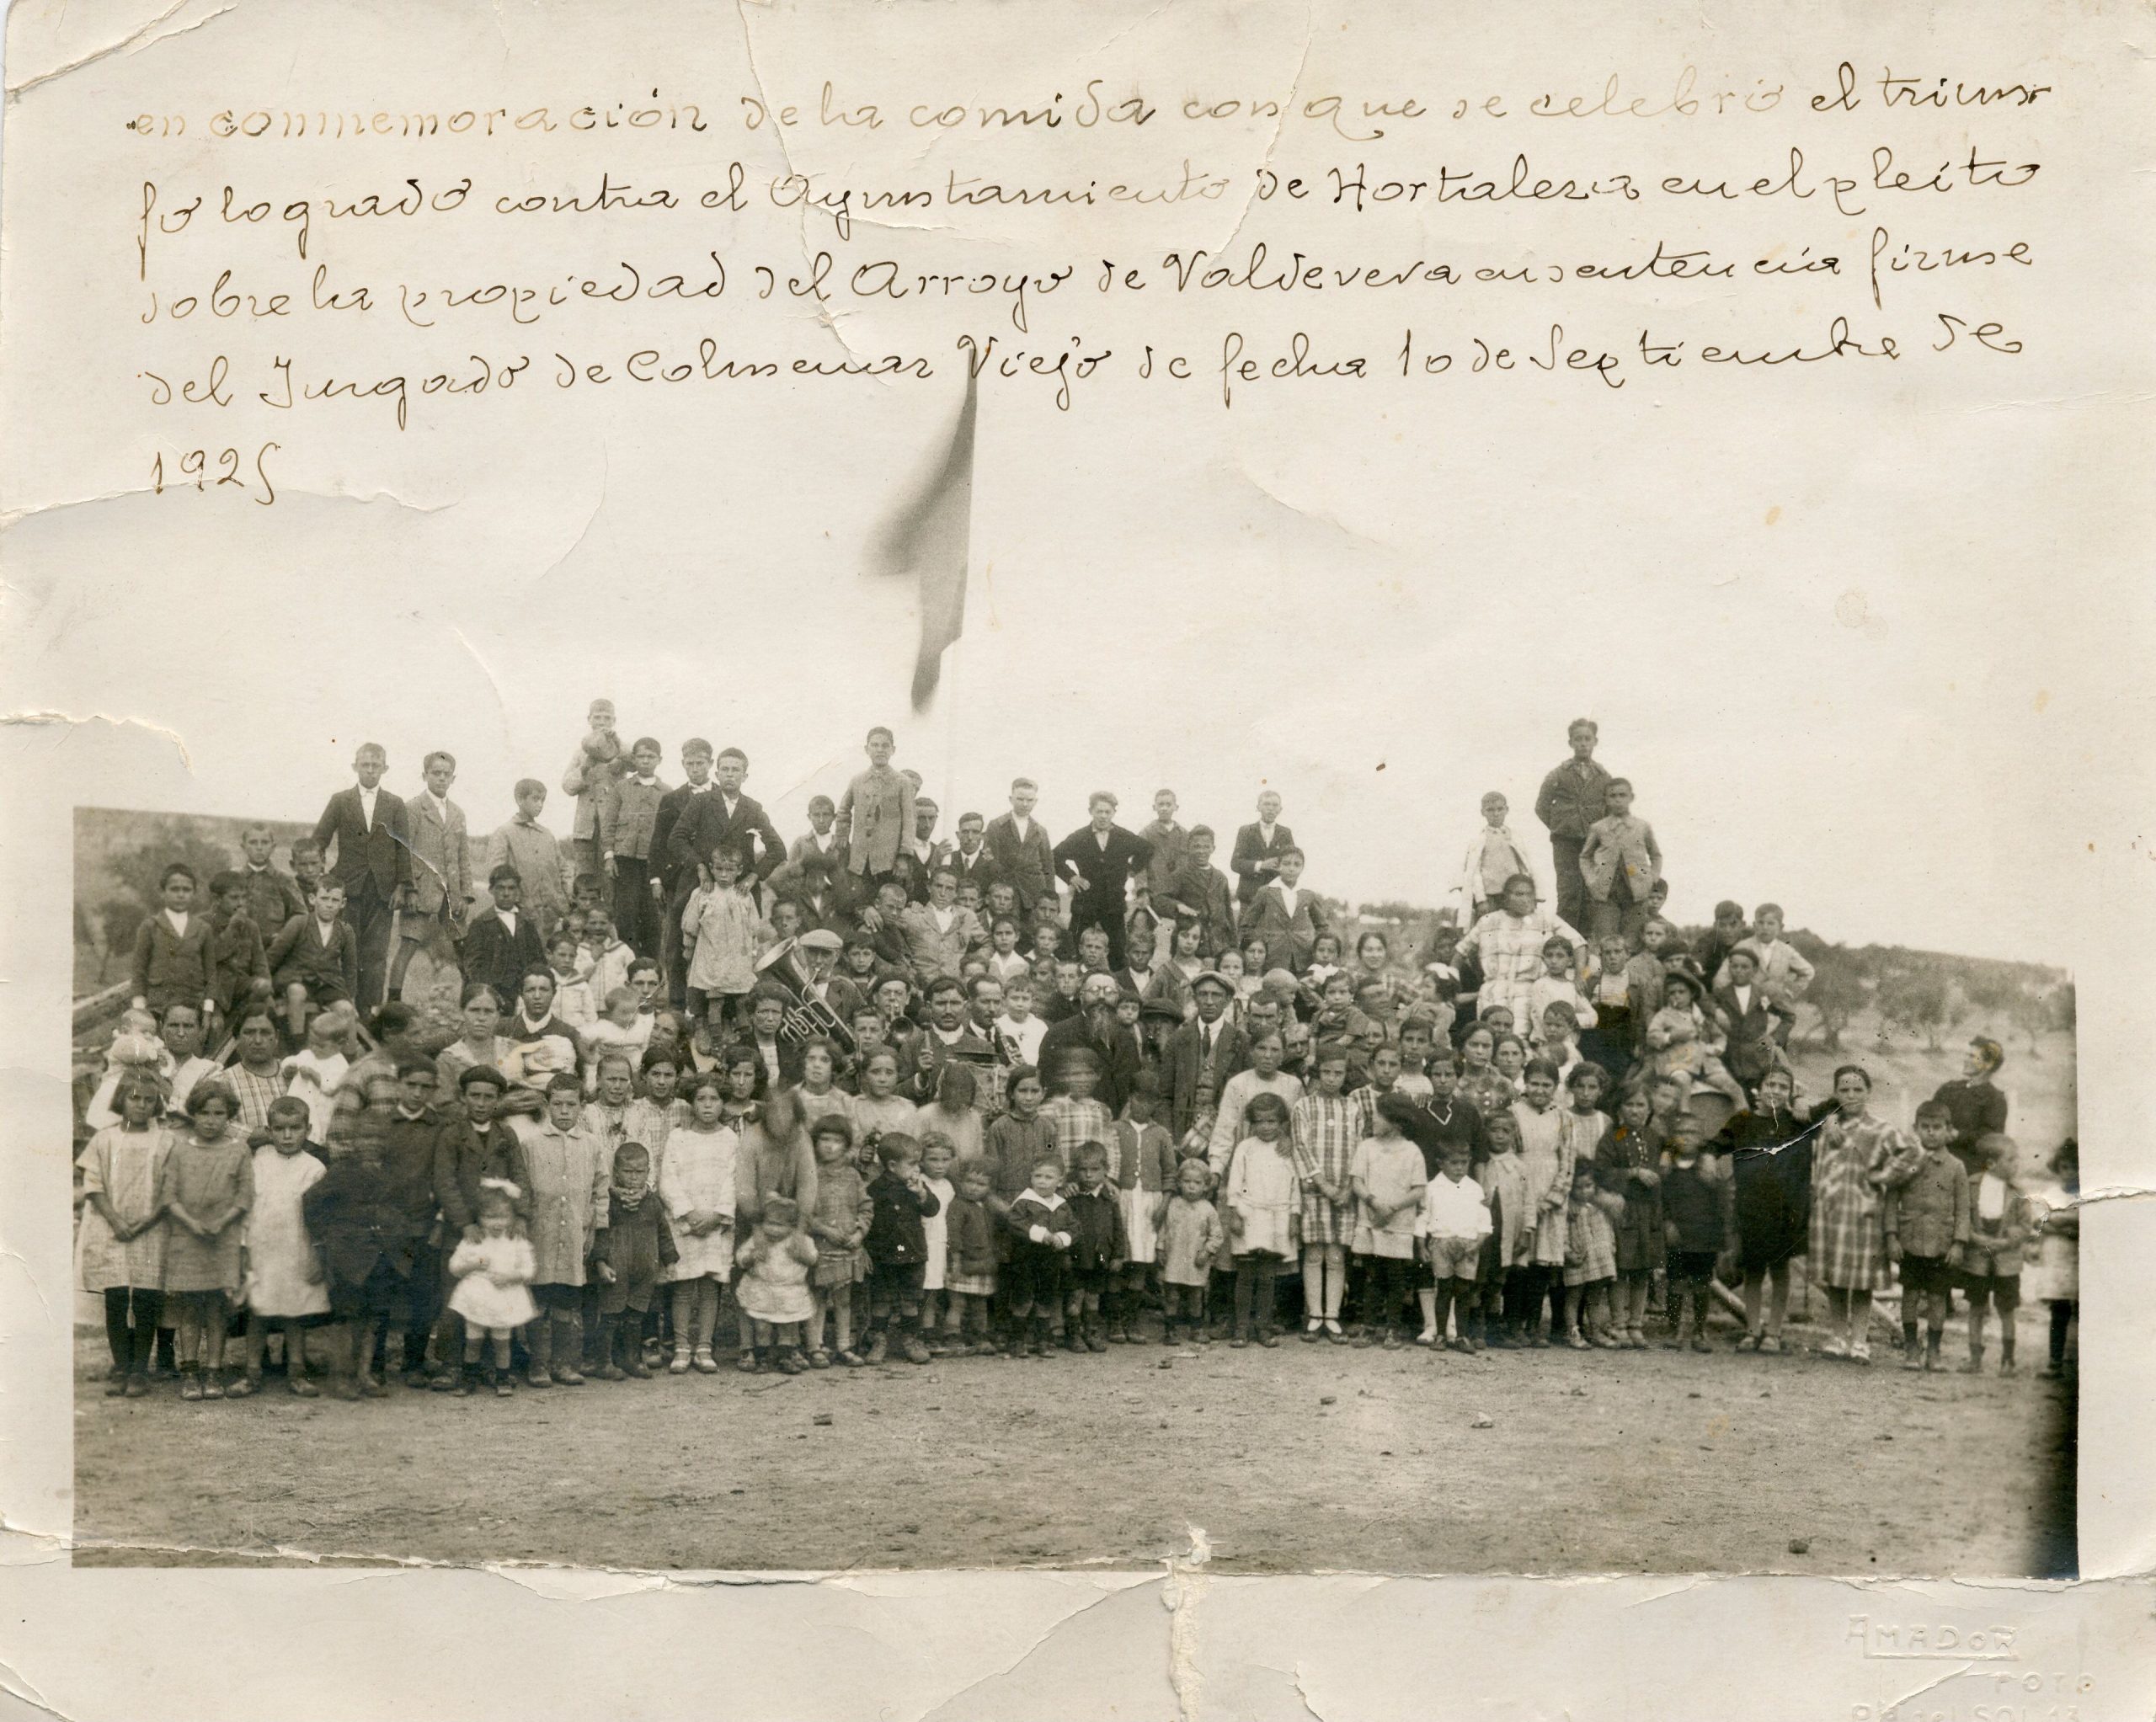 en conmemoración de la comida con que se celebró el triun
fo logrado contra el Ayuntamiento de Hortaleza en el pleito
sobre la propiedad del Arroyo de Valdeveva en sentencia firme
del Juzgado de Colmenar Viejo de fecha 10 de Septiembre de
1925
AMADOR
FOTO
SOL 13